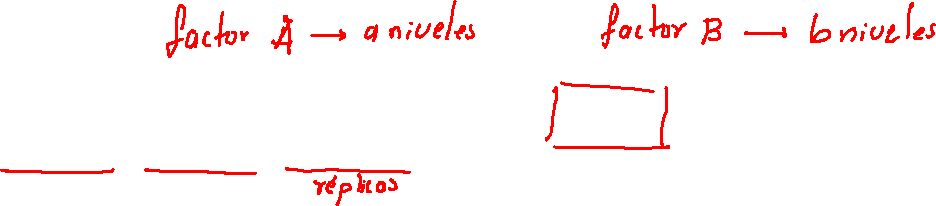 factor A → a niveles
factor B → b niveles
réplicas